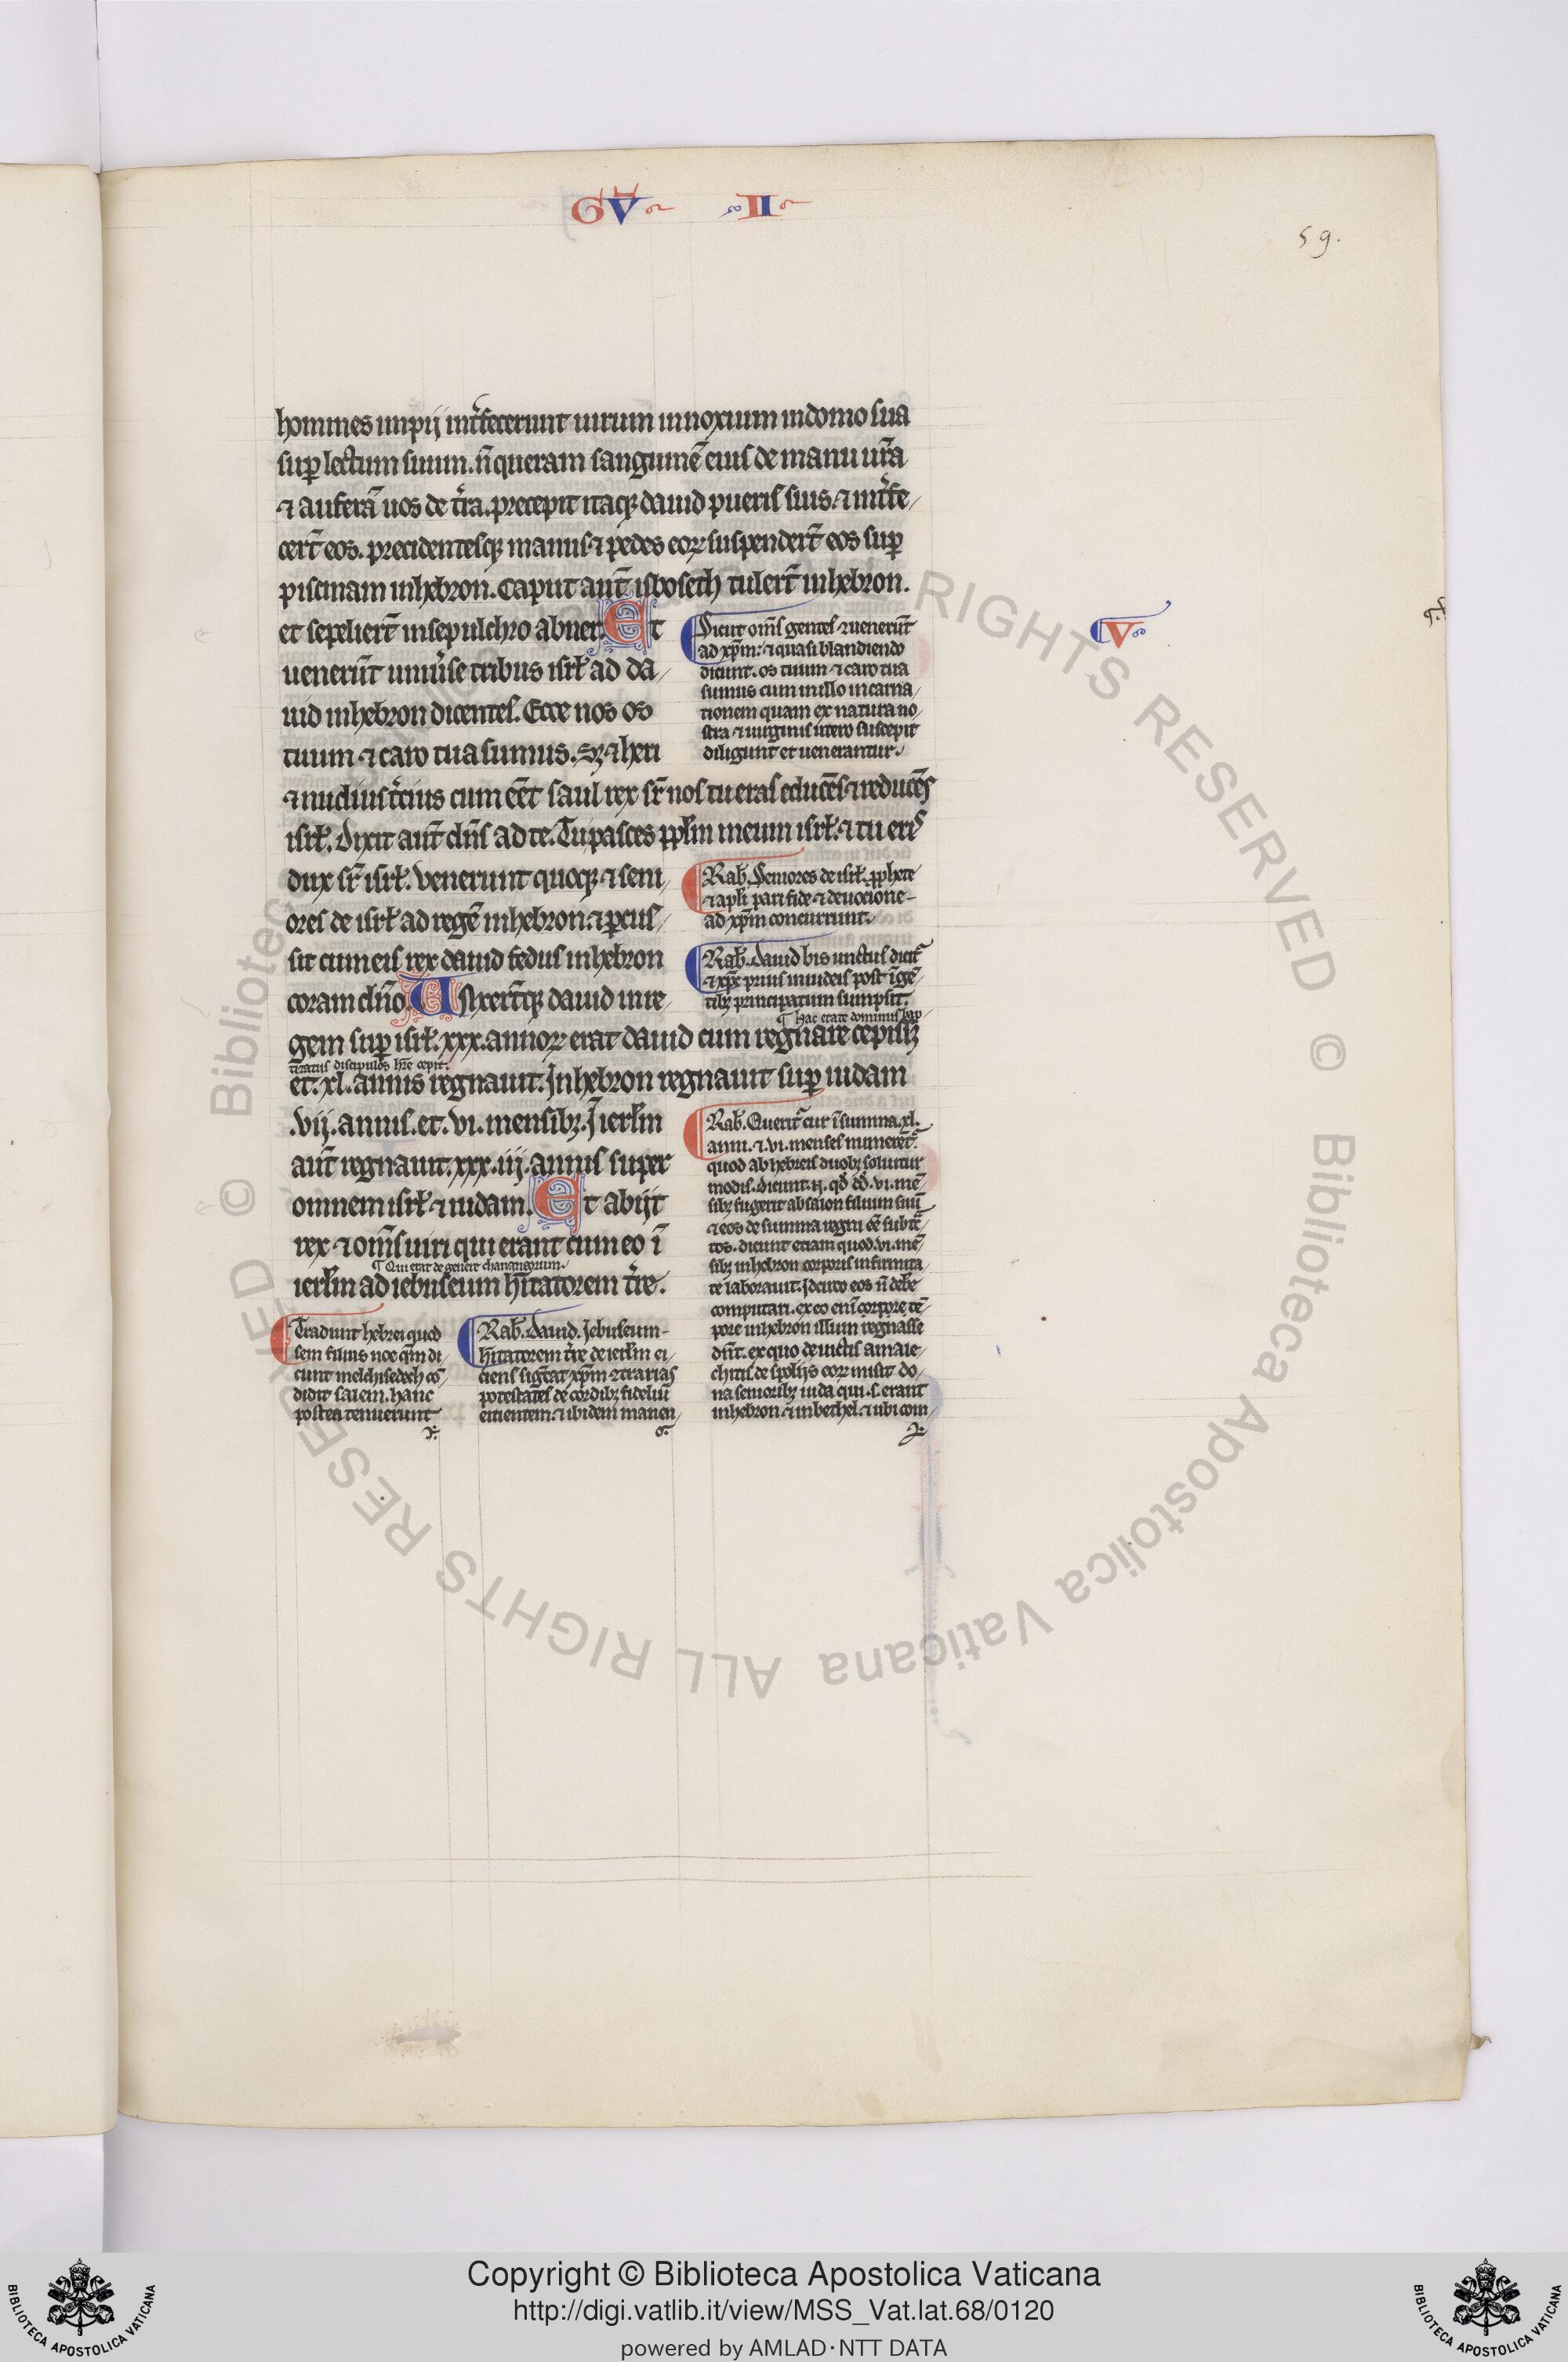 GV II
59.
homines impij int̾fecerunt uirum innoxium in domo sua
suꝑ lectum suum. n̄ queram sanguinē eius de manu ur̄a
⁊ auferā uos de t̾ra. precepit itaqꝫ dauid pueris suis. ⁊ int̾fe
cert̄ eos. precidentesqꝫ manus ⁊ pedes eoꝝ suspendert̄ eos suꝑ
piscinam in hebron. Caput aut̄ isboseth tulert̄ in hebron.
et sepeliert̄ in sepulchro abner. Et
uenerūt uniu̾se tribus isrl̄ ad da
uid in hebron dicentes. Ecce nos os
tuum ⁊ caro tua sumus. Sꝫ ⁊ heri
⁊ nudius t̾cius cum eēt saul rex sr̄ nos tu eras educēs ⁊ reducēs
isrl̄. Dixit aut̄ dn̄s ad te. Tu pasces ppl̄m meum isrl̄. ⁊ tu eris
dux sr̄ isrl̄. Venerunt quoqꝫ ⁊ seni
ores de isrl̄ ad regē in hebron. ⁊ ꝑcus
sit cum eis rex dauid fedus in hebron
coram dn̄o. Unxert̄qꝫ dauid in re
gem suꝑ isrl̄. xxx. annoꝝ erat dauid cum regnare cepissꝫ
et. xl. annis regnauit. In hebron regnauit suꝑ iudam
.vij. annis. et. vi. mensibꝫ. Ī ierl̄m
aut̄ regnauit. xxx. iij. annis super
omnem isrl̄ ⁊ iudam. Et abijt
rex ⁊ om̄s uiri qui erant cum eo ī
¶ Qui erat de genere chananeorum.
ierl̄m ad iebuseum hītatorem t̾re.
Sicut om̄s gentes ⁊ uenerūt
ad xp̄m. ⁊ quasi blandiendo
dicunt. os tuum ⁊ caro tua
sumus cum in illo incarna
tionem quam ex natura no
stra ⁊ uirginis utero suscepit
diligunt et uenerantur.
V
Rab̄. Seniores de isrl̄. ꝓphete
⁊ apl̄i pari fide ⁊ deuocione
ad xp̄m concurrunt.
Rab̄. dauid bis unctus dicit̾
⁊ xp̄c prius in iudeis post ī gē
tibꝫ principatum sumpsit.
¶ Hac etate dominus bap
tizatus discipulos hr̄e cepit.
Rab̄. Querit̾ cur ī summa. xl.
anni. ⁊. vi. menses numeret̾.
quod ab hebreis duobꝫ soluitur
modis. dicunt. n̄. qd̾ dd̾. vi. mē
sibꝫ fugerit absalon filium suū
⁊ eos de summa regni eē subtc̄
tos. dicunt etiam quod. vi. mē
sibꝫ in hebron corporis infirmita
te laborauit. Idcirco eos n̄ debē
computari. ex eo enī corpore tē
pore in hebron illum regnasse
dn̄t. ex quo deuictis amale
chitis de spolijs eoꝝ misit do
na senioribꝫ iuda qui. s. erant
in hebron ⁊ in bethel ⁊ ubi com
Tradunt hebrei quod
sem filius noe qm̄ di
cunt melchisedech cō
didit salem. hanc
postea tenuerunt
Rab̄. dauid. Iebuseum
hītatorem t̾re de ierl̄m ei
ciens sigc̄at xp̄m ⁊trarias
potestates de cordibꝫ fideliū
eicientem. ⁊ ibidem manen
© Biblioteca Apostolica Vaticana ALL RIGHTS RESERVED
© Biblioteca Apostolica Vaticana ALL RIGHTS RESERVED
Copyright © Biblioteca Apostolica Vaticana
http://digi.vatlib.it/view/MSS_Vat.lat.68/0120
powered by AMLAD·NTT DATA
BIBLIOTECA APOSTOLICA VATICANA
BIBLIOTECA APOSTOLICA VATICANA